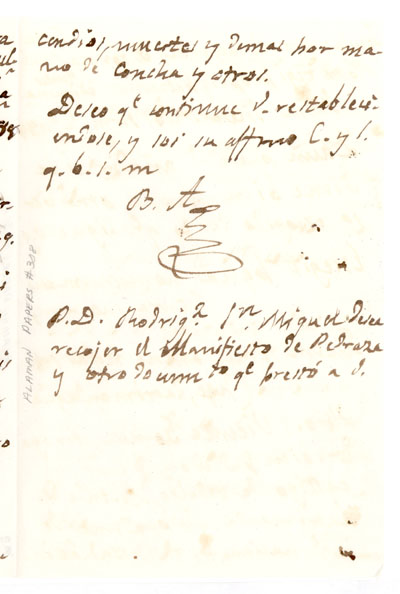 cendios, muertes y demas por ma-
no de Concha y otros.
Deseo qe continue V. restableci-
endose, y soi su affmo C. y S.
q. b. s. m
B. A
P.D. Rodrigz. Sn. Miguel desea
recojer el Manifiesto de Pedraza
y otro documto qe prestó a V.
ALAMAN PAPERS #308